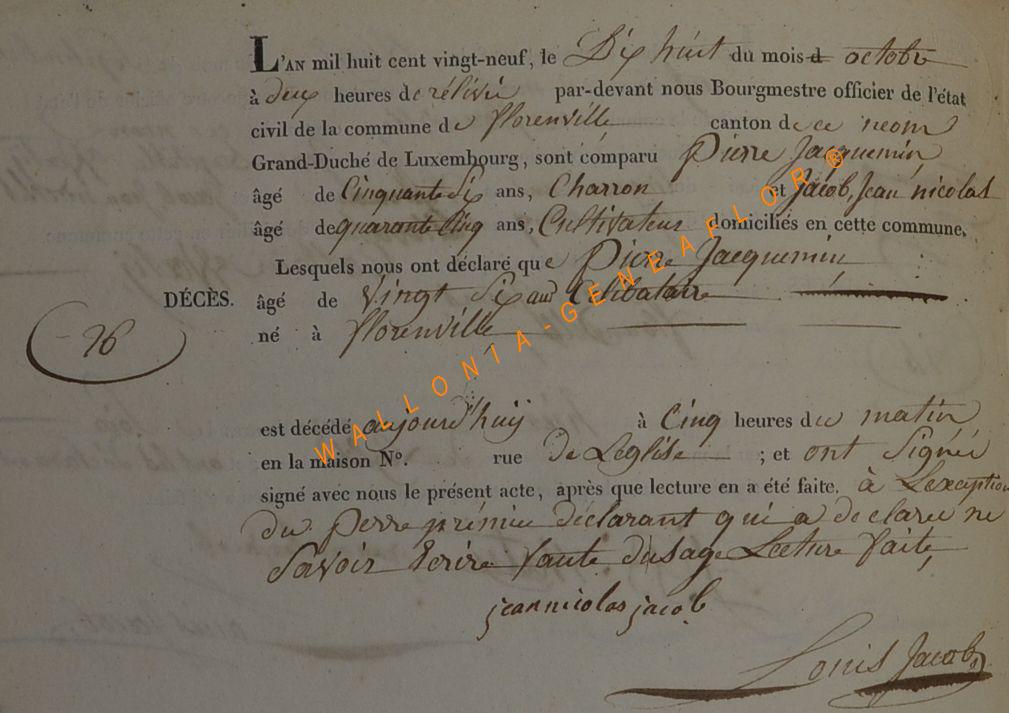 L'AN mil huit cent vingt-neuf, le Dix huit du mois d octobre
à deux heures de rélivée par-devant nous Bourgmestre officier de l'état
civil de la commune de florenville canton de ce neom
Grand-Duché de Luxembourg, sont comparu Pierre Jacquemin
âgé de Cinquante Six ans, Charron et Jacob, Jean nicolas
âgé de quarante Cinq ans, Cultivateur domiciliés en cette commune.
Lesquels nous ont déclaré que Pierre Jacquemin
DÉCÈS. âgé de Vingt Six ans Célibataire
26 né à florenville
est décédé aujourd'huy à Cinq heures du matin
en la maison N°. rue De Léglise ; et ont Signé
signé avec nous le présent acte, après que lecture en a été faite. à Lexception
du perre prémier déclarant qui a declaré ne
Savoir Ecrire faute dusage Lecture faite,
jean nicolas jacob
Louis Jacob
WALLONIA-GENEAFLOR ®